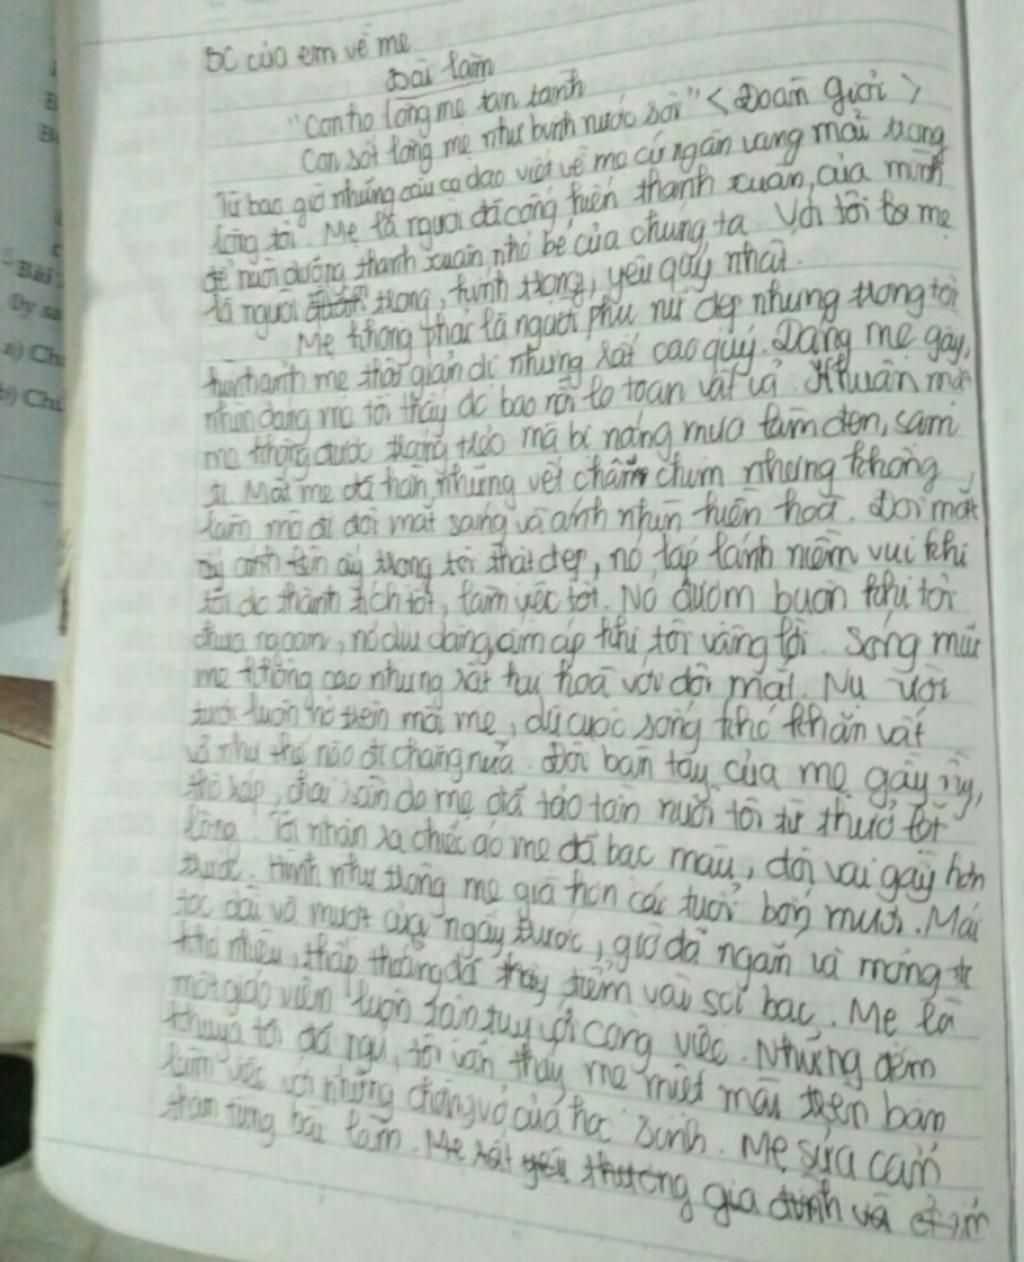 ĐC của em về mẹ
Bài làm
"Con ho lòng mẹ tan tành
Con sốt lòng mẹ như bình nước sôi" < Đoàn Giỏi >
Từ bao giờ những câu ca dao viết về mẹ cứ ngân vang mãi trong
lòng tôi. Mẹ là người đã cống hiến thanh xuân, của mình
để nuôi dưỡng thanh xuân nhỏ bé của chúng ta. Với tôi mẹ
là người trọng, kính trọng, yêu quý nhất.
Mẹ không phải là người phụ nữ đẹp nhưng trong tôi
hình ảnh mẹ thật giản dị nhưng rất cao quý. Dáng mẹ gầy,
nhìn dáng mẹ tôi thấy đc bao nỗi lo toan vất vả. Khuân mặt
mẹ không được trắng trẻo mà bị nắng mưa làm đen, sạm
đi. Mắt mẹ đã hằn những vết chân chim nhưng không
làm mờ đi đôi mắt sáng và ánh nhìn hiền hoà. Đôi mắt
ấy ánh lên ấy trong tôi thật đẹp, nó lấp lánh niềm vui khi
tôi đc thành tích tốt, làm việc tốt. Nó đượm buồn khi tôi
chưa ngoan, nó dịu dàng ấm áp khi tôi vâng lời. Sống mũi
mẹ không cao nhưng rất hài hoà với đôi mắt. Nụ cười
tươi luôn nở trên môi mẹ, dù cuộc sống khó khăn vất
vả như thế nào đi chăng nữa. Đôi bàn tay của mẹ gầy gầy,
thô ráp, chai sần do mẹ đã tảo tần nuôi tôi từ thuở lọt
lòng. Tôi nhận ra chiếc áo mẹ đã bạc màu, đôi vai gầy hơn
trước. Hình như trông mẹ già hơn cái tuổi bốn mươi. Mái
tóc dài và mượt của ngày trước, giờ đã ngắn và mỏng đi
khá nhiều, thấp thoáng đã thấy điểm vài sợi bạc. Mẹ là
một giáo viên luôn tận tuỵ với công việc. Những đêm
khuya tôi đã ngủ, tôi vẫn thấy mẹ miệt mài trên bàn
làm việc với những chồng vở của học sinh. Mẹ sửa cẩn
thận từng bài làm. Mẹ rất yêu thương gia đình và